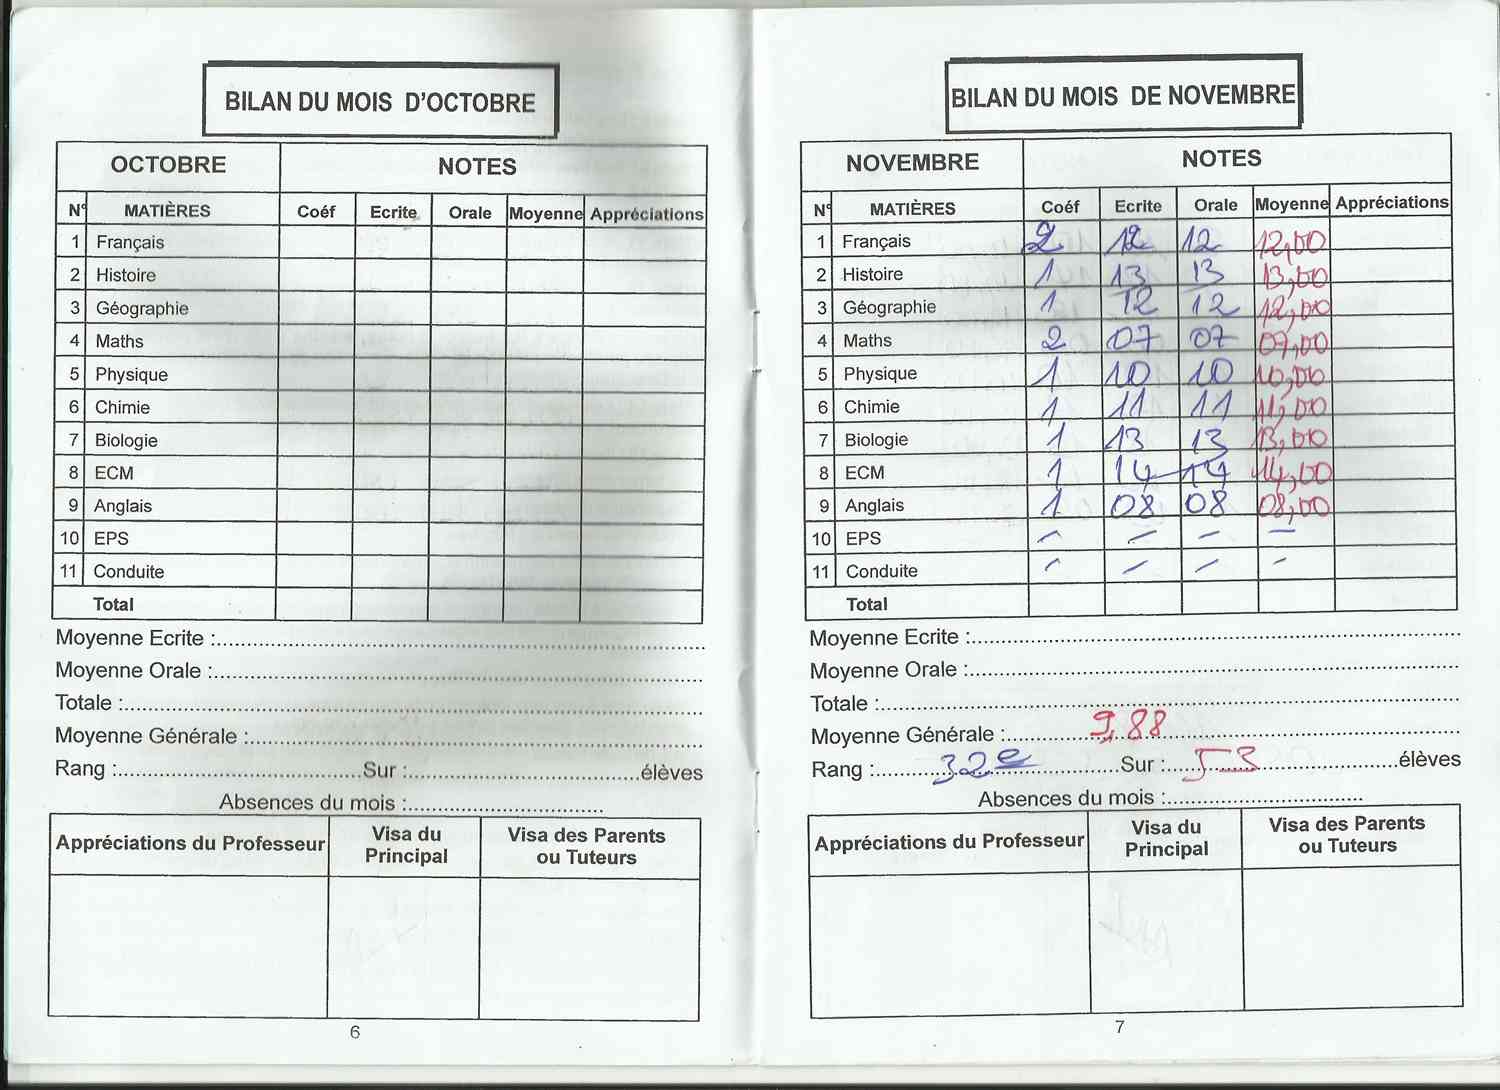 BILAN DU MOIS D'OCTOBRE
OCTOBRE NOTES
N° MATIÈRES Coéf Ecrite Orale Moyenne Appréciations
1 Français
2 Histoire
3 Géographie
4 Maths
5 Physique
6 Chimie
7 Biologie
8 ECM
9 Anglais
10 EPS
11 Conduite
Total
Moyenne Ecrite :
Moyenne Orale :
Totale :
Moyenne Générale :
Rang : Sur : élèves
Absences du mois :
Appréciations du Professeur Visa du Principal Visa des Parents ou Tuteurs
6
BILAN DU MOIS DE NOVEMBRE
NOVEMBRE NOTES
N° MATIÈRES Coéf Ecrite Orale Moyenne Appréciations
1 Français 2 12 12 12,00
2 Histoire 1 13 13 13,00
3 Géographie 1 12 12 12,00
4 Maths 2 07 07 07,00
5 Physique 1 10 10 10,00
6 Chimie 1 11 11 11,00
7 Biologie 1 13 13 13,00
8 ECM 1 14 14 14,00
9 Anglais 1 08 08 08,00
10 EPS - - - -
11 Conduite - - - -
Total
Moyenne Ecrite :
Moyenne Orale :
Totale :
Moyenne Générale : 9,88
Rang : 32e Sur : 53 élèves
Absences du mois :
Appréciations du Professeur Visa du Principal Visa des Parents ou Tuteurs
7